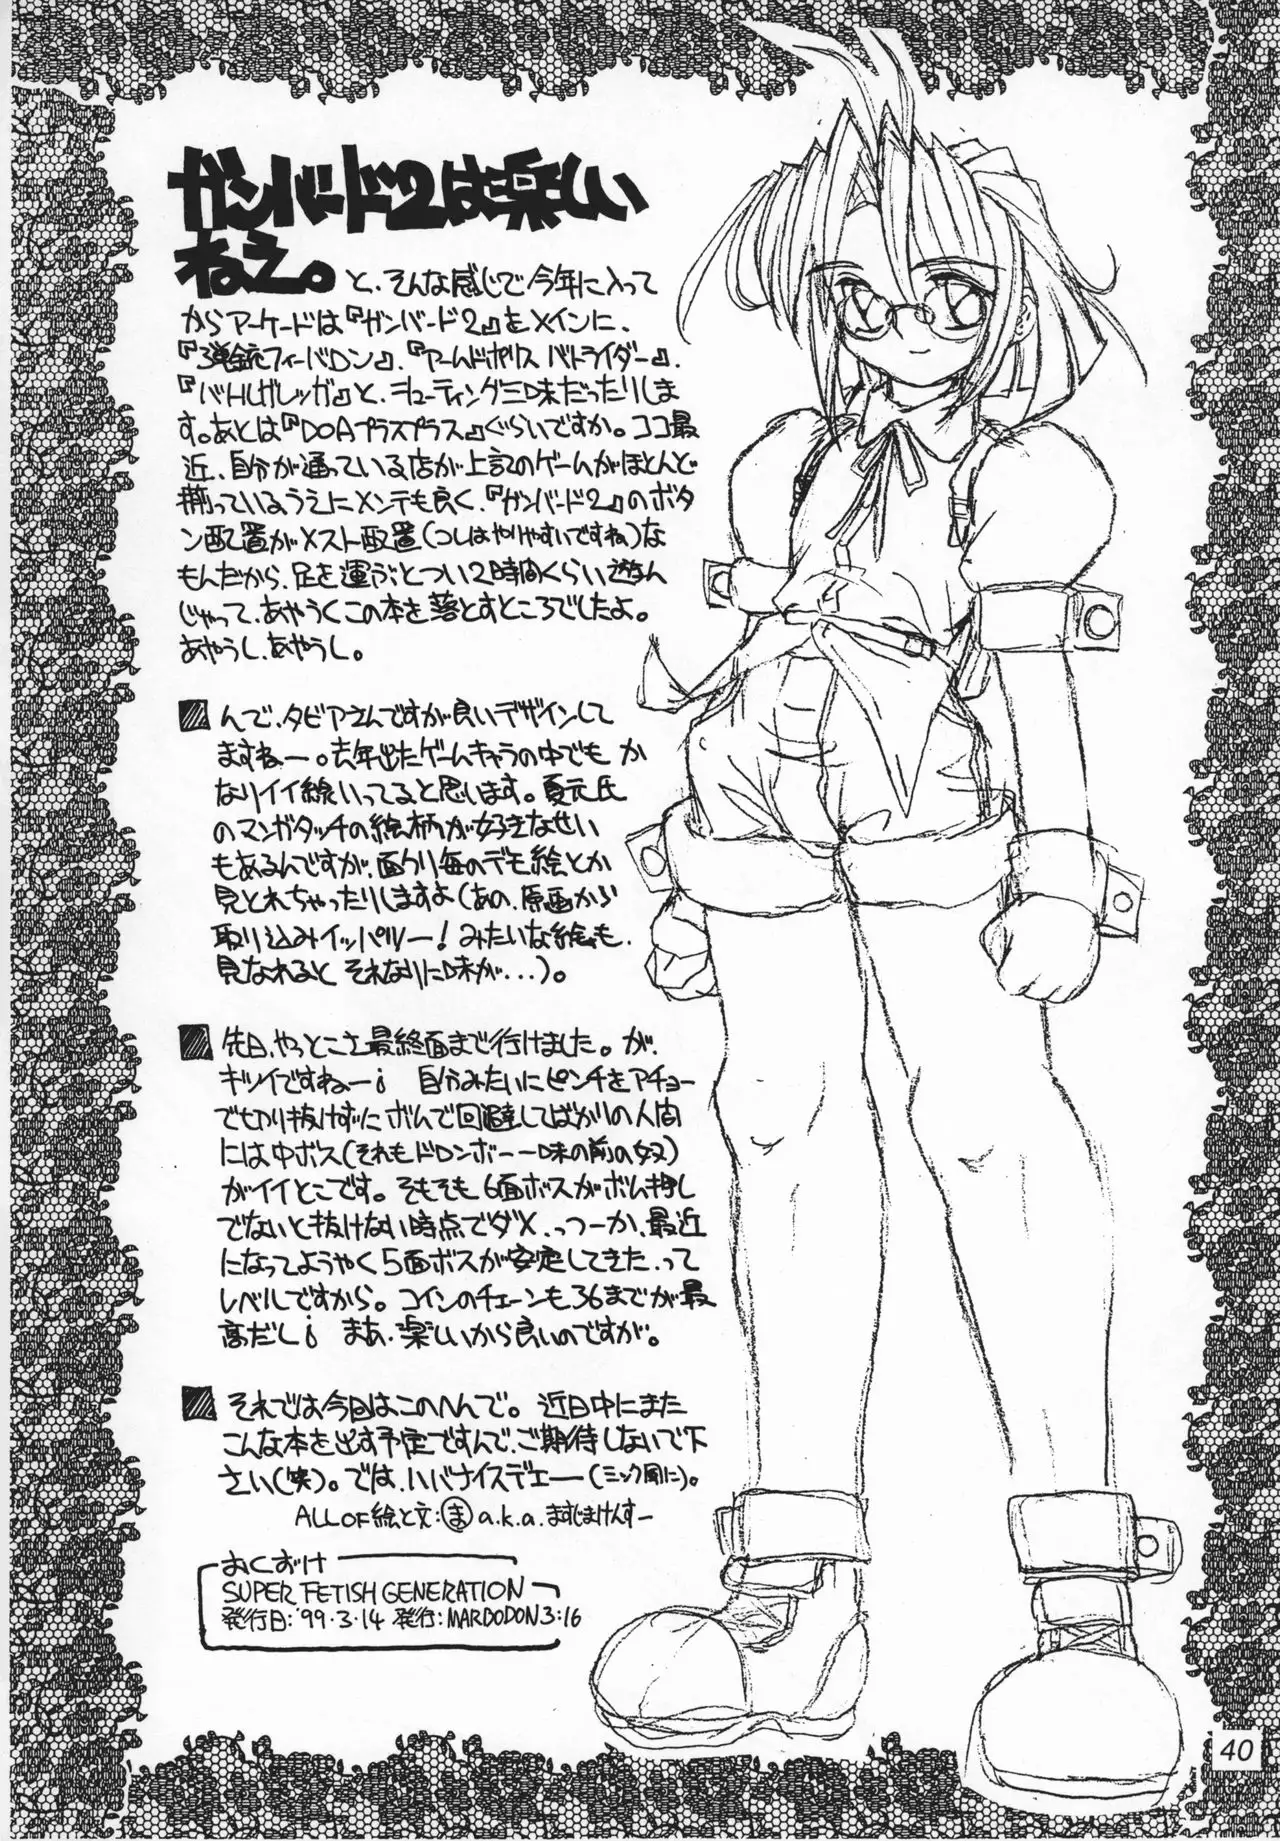 ガンバード2は楽しい
ねえ。と、そんな感じで今年に入って
からアーケードは『ガンバード2』をメインに、
『弾銃フィーバロン』、『アームドポリス バトライダー』、
『バトルガレッガ』と、シューティング三昧だったりしま
す。あとは『DOAプラスプラス』ぐらいですか。ココ最
近、自分が通っている店が上記のゲームがほとんど
揃っているうえにメンテも良く、『ガンバード2』のボタ
ン配置がメスト配置(コレはやりやすいですね)な
もんだから、足を運ぶとつい2時間くらい遊ん
じゃって、あやうくこの本を落とすところでしたよ。
あやうし、あやうし。
んで、タビアさんですが良いデザインして
ますねー。去年出たゲームキャラの中でも か
なりイイ線いってると思います。夏元氏
のマンガタッチの絵柄が好きなせい
もあるんですが、面クリ毎のデモ絵とか
見とれちゃったりしますよ(あの、原画から
取り込みイッパツー!みたいな絵も、
見なれると それなりに味が...)。
先日、やっとこさ最終面まで行けました。が、
キツイですねー¡ 自分みたいにピンチをアチョー
で切り抜けずに ボムで回避してばかりの人間
には中ボス(それもドロンボー一味の前の奴)
がイイとこです。そもそも 6面ボスがボム押し
でないと抜けない時点でダメ、っつーか、最近
になってようやく5面ボスが安定してきた、って
レベルですから。コインのチェーンも36までが最
高だし¡ まあ、楽しいから良いのですが。
それでは今日はこのへんで。近日中にまた
こんな本を出す予定ですんで、ご期待しないで下
さい(笑)。では、ハバナイスデェー(ミンク風に)。
ALL OF 絵と文:ま a.k.a. ますじまけんすー
おくづけ
SUPER FETISH GENERATION
発行日:'99・3・14 発行:MARDODON 3:16
40